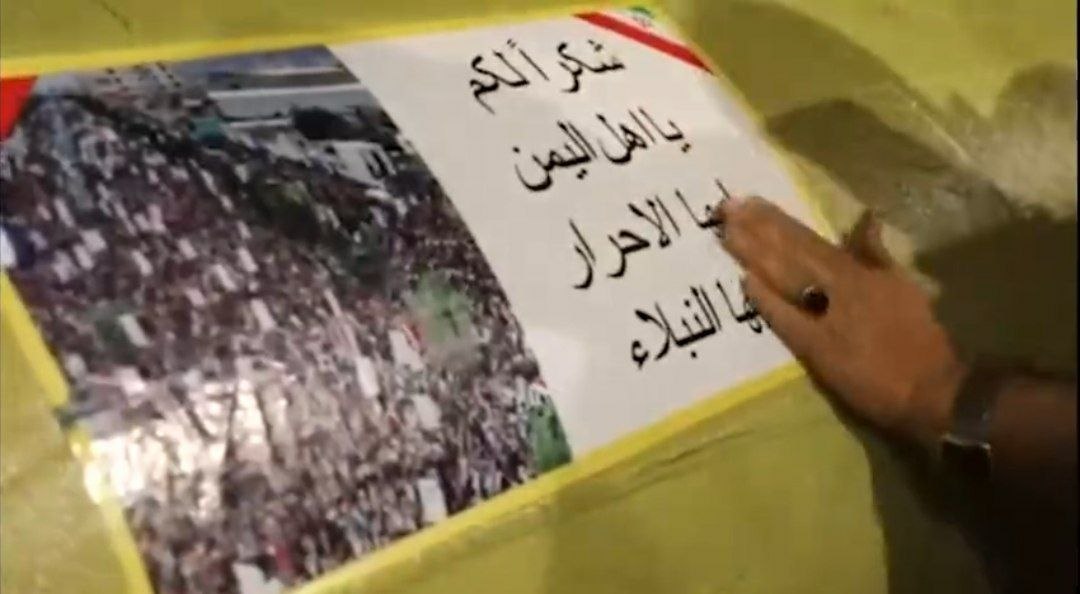 شكراً لكم
يا اهل اليمن
ايها الاحرار
ايها النبلاء